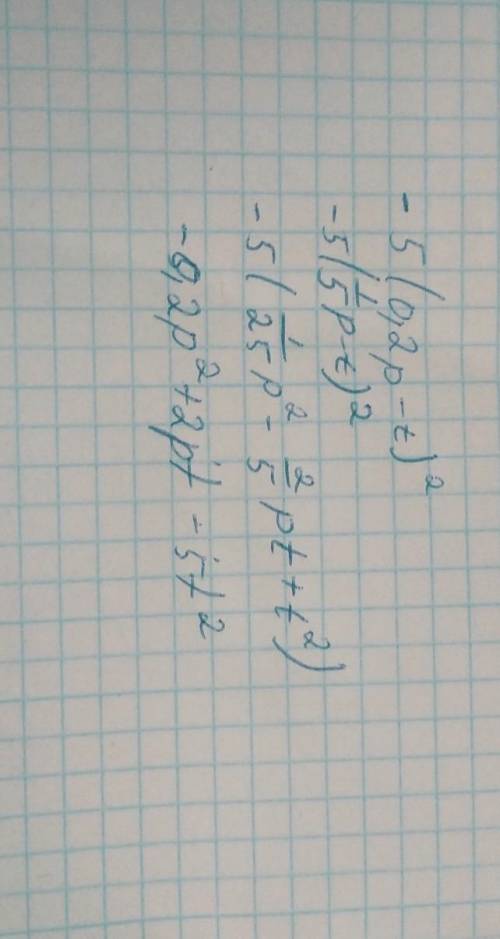 - 5 (0,2p - t)²
- 5 (1/5 p - t)²
- 5 (1/25 p² - 2/5 pt + t²)
- 0,2p² + 2pt - 5t²